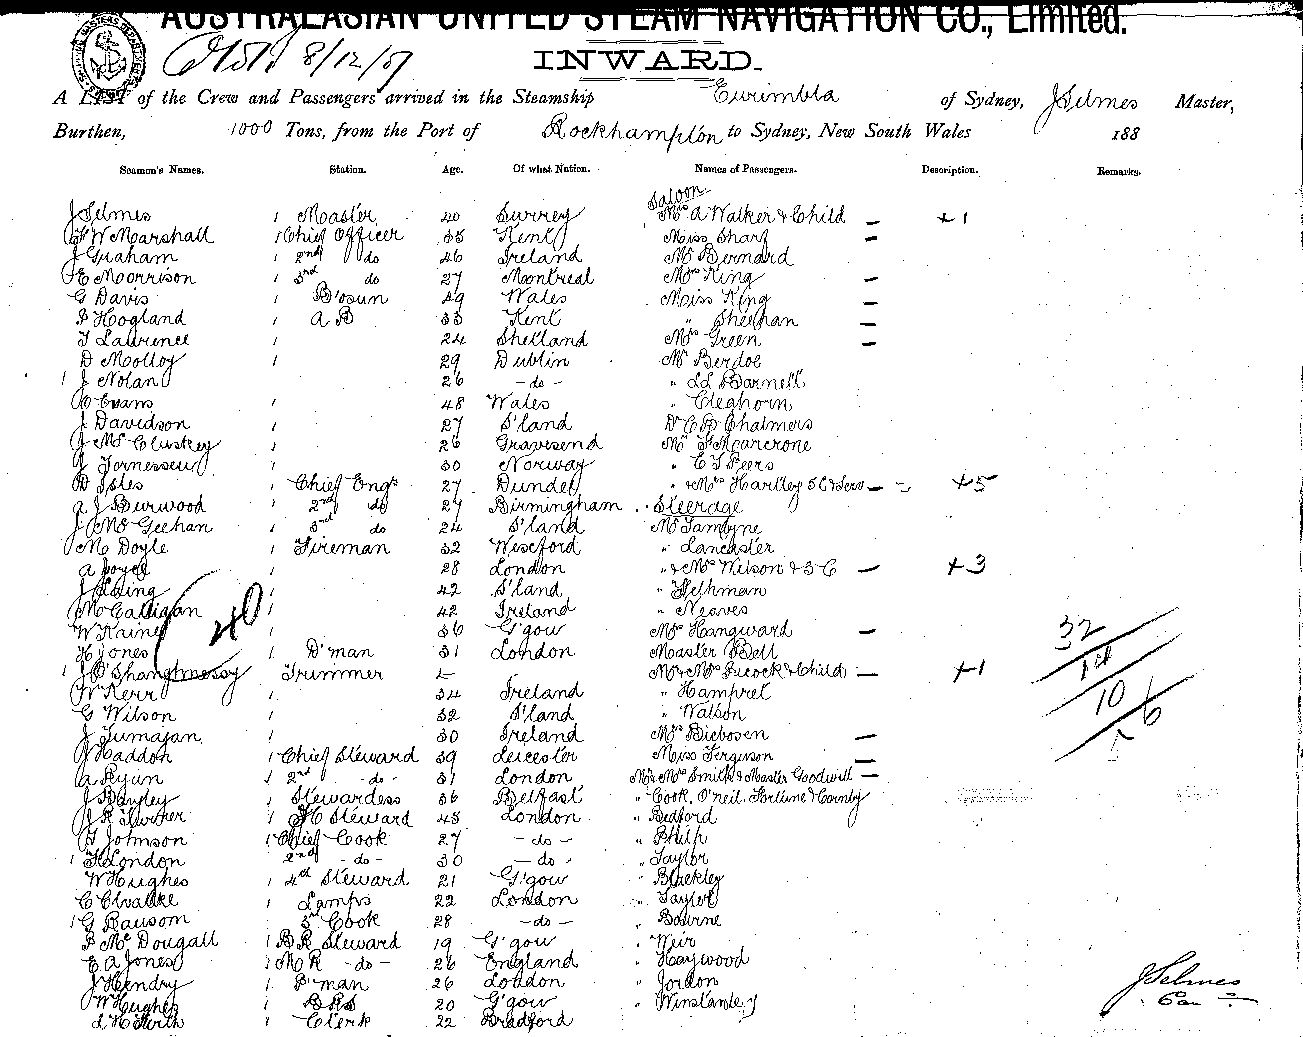 AUSTRALASIAN UNITED STEAM NAVIGATION CO., Limited.
8/12/87
INWARD.
A LIST of the Crew and Passengers arrived in the Steamship Eurimbla of Sydney, J Selmes Master,
Burthen, 1000 Tons, from the Port of Rockhampton to Sydney, New South Wales 188
Seamen's Names. Station. Age. Of what Nation. Names of Passengers. Description. Remarks.
Saloon
J Selmes 1 Master 40 Surrey Mrs A Walker & Child — +1
F W Marshall 1 Chief Officer 35 Kent Miss Sharp —
J Graham 1 2nd do 46 Ireland Mr Bernard
E Morrison 1 3rd do 27 Montreal Mrs King —
G Davis 1 B'osun 49 Wales Miss King —
P Hogland 1 A B 33 Kent " Sheehan —
T Lawrence 1 24 Shetland Mrs Green —
D Molloy 1 29 Dublin Mr Berdoe
1 J Nolan 1 26 - do - "
Evans 1 48 Wales " Cleghorn
J Davidson 1 27 S'land Dr C B Chalmers
J McCluskey 1 26 Gravesend Mr F Marcrone
1 30 Norway " E T Peers
D Isles 1 Chief Engr 27 Dundee " & Mrs Hartley 5 C & Serv — +5
A J Burwood 1 2nd do 27 Birmingham Steerage
J McGeehan 1 3rd do 24 S'land Mr Tamlyne
M Doyle 1 Fireman 32 Wexford " Lancaster
A Joyce 1 28 London " & Mrs Wilson & 3 C — +3
J Laing 1 42 S'land "
McCalligan 1 42 Ireland " Neaves
W Raine 1 36 G'gow Mrs Hangward — 32
40
H Jones 1 D'man 31 London Master Bell
1 J O'Shanghnessy 1 Trimmer Mr & Mrs Pucock & Child — +1
W Kerr 1 34 Ireland " 10
G Wilson 1 32 S'land " Watson 6
J 1 30 Ireland Mrs Biebosen —
J Haddon 1 Chief Steward 39 Leicester Miss Ferguson —
A Ryan 1 2nd - do - 31 London Mr & Mrs Smith & Master Goodwill —
J Bayley 1 Stewardess 36 Belfast " Cook, O'neil, Fortune & Hornby
J R 1 Steward 45 London " Bedford
Johnson 1 Chief Cook 27 - do - " Philp
1 H London 1 2nd - do - 30 - do - " Taylor
W Hughes 1 4th Steward 21 G'gow " Blackley
C 1 Lamps 22 London " Taylor
1 G Bausom 3rd Cook 28 - do - " Bourne
P McDougall 1 B R Steward 19 G'gow " Weir
E A Jones 1 M R - do - 26 England " Haywood
J Hendry 1 P'man 26 London " Jordon
W Hughes 1 20 G'gow " Winstanley
1 Clerk 22 Bradford
J Selmes